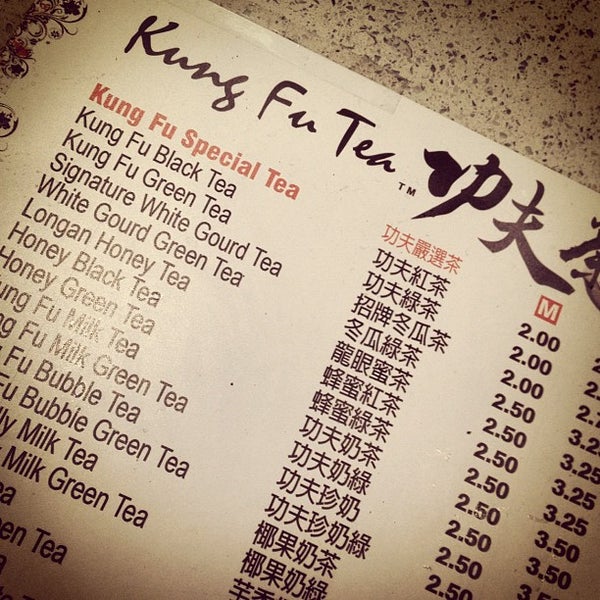 Kung Fu Tea ™ 功夫茶
Kung Fu Special Tea 功夫嚴選茶 M
Kung Fu Black Tea 功夫紅茶 2.00
Kung Fu Green Tea 功夫綠茶 2.00
Signature White Gourd Tea 招牌冬瓜茶 2.00
White Gourd Green Tea 冬瓜綠茶 2.50 3.25
Longan Honey Tea 龍眼蜜茶 2.50 3.25
Honey Black Tea 蜂蜜紅茶 2.50 3.25
Honey Green Tea 蜂蜜綠茶 2.50 3.25
ung Fu Milk Tea 功夫奶茶 2.50 3.50
ng Fu Milk Green Tea 功夫奶綠 2.50 3.50
g Fu Bubble Tea 功夫珍奶 2.50 3.50
Fu Bubble Green Tea 功夫珍奶綠 2.50
lly Milk Tea 椰果奶茶
Milk Green Tea 椰果奶綠
ea
een Tea